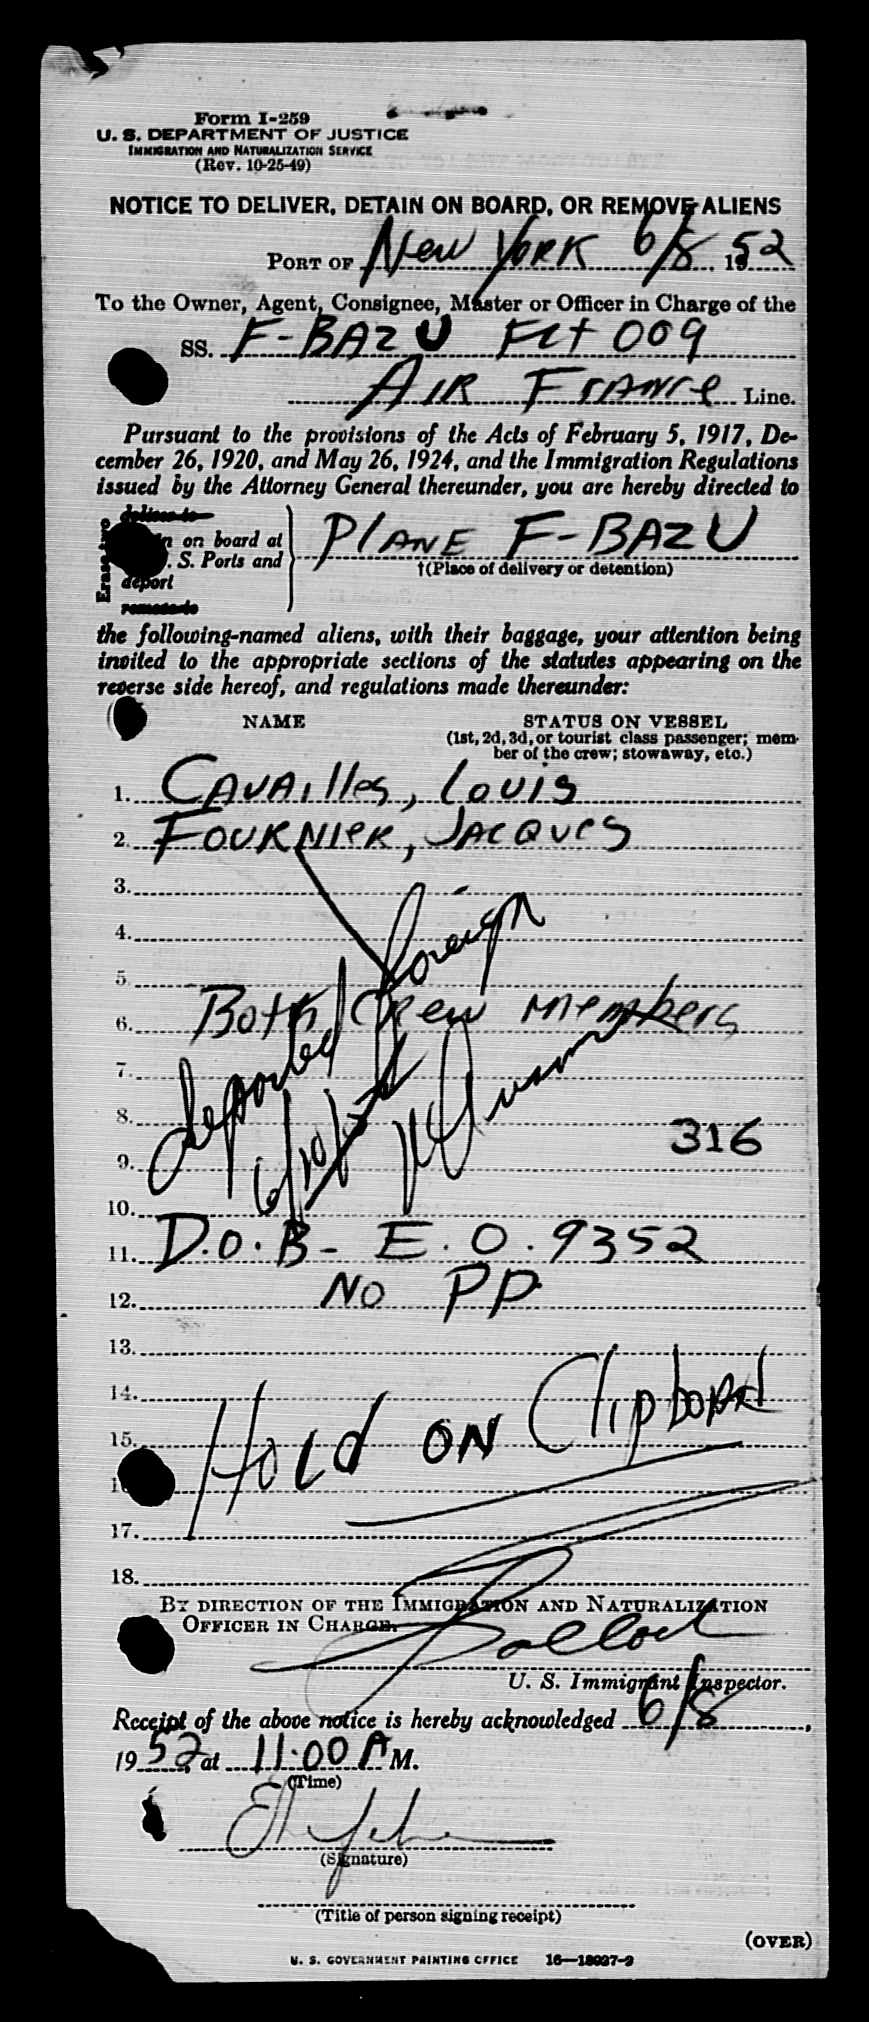 Form I-259
U. S. DEPARTMENT OF JUSTICE
IMMIGRATION AND NATURALIZATION SERVICE
(Rev. 10-25-49)
NOTICE TO DELIVER, DETAIN ON BOARD, OR REMOVE ALIENS
PORT OF New York 6/8, 1952
To the Owner, Agent, Consignee, Master or Officer in Charge of the
SS. F-BAZU Flt 009
Air France Line.
Pursuant to the provisions of the Acts of February 5, 1917, De-
cember 26, 1920, and May 26, 1924, and the Immigration Regulations
issued by the Attorney General thereunder, you are hereby directed to
Erase two
deliver to
on board at
S. Ports and
deport
remove to
Plane F-BAZU
†(Place of delivery or detention)
the following-named aliens, with their baggage, your attention being
invited to the appropriate sections of the statutes appearing on the
reverse side hereof, and regulations made thereunder:
NAME STATUS ON VESSEL
(1st, 2d, 3d, or tourist class passenger; mem-
ber of the crew; stowaway, etc.)
1. Cavailles, Louis
2. Fournier, Jacques
3.
4. foreign
5.
6. Both Crew Members
7. deported
8. 316
9. 6/10/52
10.
11. D.O.B- E.O. 9352
12. No PP
13.
14.
15. Hold on Clipboard
17.
18.
BY DIRECTION OF THE IMMIGRATION AND NATURALIZATION
OFFICER IN CHARGE.
U. S. Immigrant Inspector.
Receipt of the above notice is hereby acknowledged 6/8,
1952, at 11:00 AM.
(Time)
(Signature)
(Title of person signing receipt)
(OVER)
U. S. GOVERNMENT PRINTING OFFICE 16—18027-2